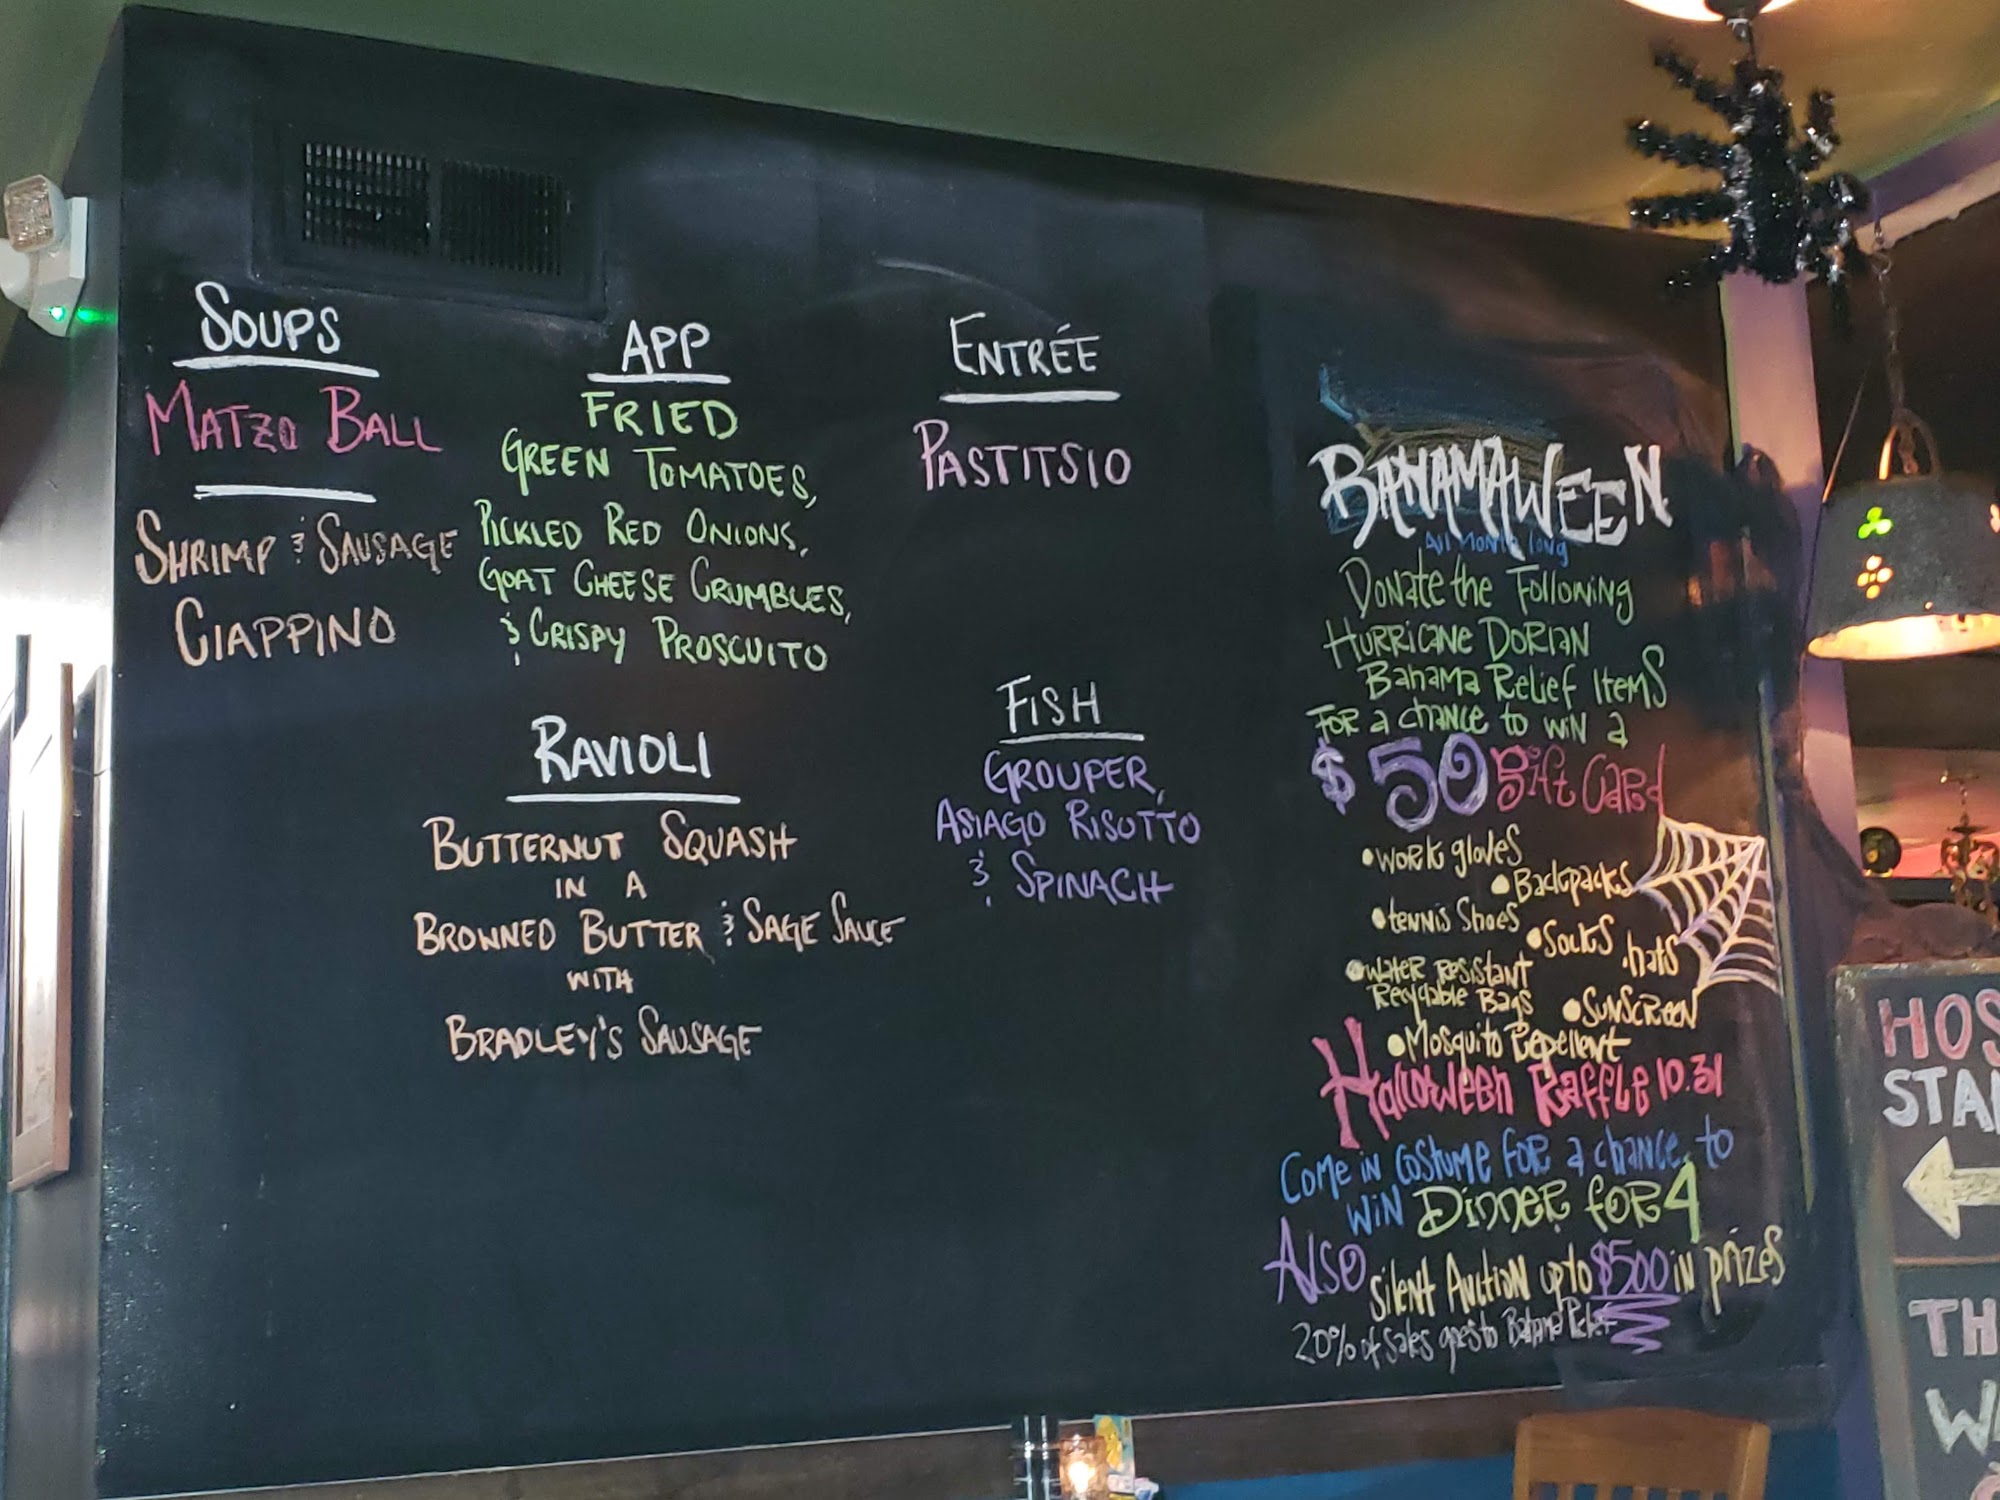 SOUPS
MATZO BALL
SHRIMP & SAUSAGE
CIAPPINO
APP
FRIED
GREEN TOMATOES,
PICKLED RED ONIONS,
GOAT CHEESE CRUMBLES,
& CRISPY PROSCUITO
RAVIOLI
BUTTERNUT SQUASH
IN A
BROWNED BUTTER & SAGE SAUCE
WITH
BRADLEY'S SAUSAGE
ENTRÉE
PASTITSIO
FISH
GROUPER,
ASIAGO RISOTTO
& SPINACH
BAHAMAWEEN
All Month long
Donate the Following
HURRICANE DORIAN
Bahama Relief Items
FOR a chance to win a
$50 Gift Card
•work gloves
•Backpacks
•tennis Shoes
•Socks
•hats
•water resistant
Recyclable Bags
•SUNSCREEN
•Mosquito Repellent
Halloween Raffle 10.31
Come in Costume for a chance to
WIN Dinner for 4
Also Silent Auction up to $500 in prizes
20% of sales goes to Bahama Relief
HOS
STA
TH
W